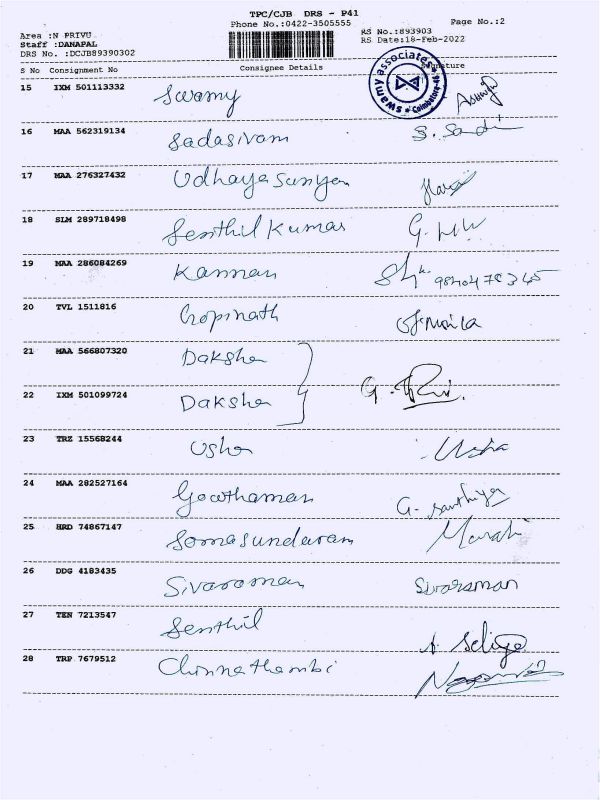 TPC/CJB DRS - P41
Phone No.:0422-3505555
Page No.:2
Area :N PRIVU
Staff :DANAPAL
DRS No. :DCJB89390302
RS No.:893903
RS Date:18-Feb-2022
S No Consignment No Consignee Details Signature
swamy associates Coimbatore
15 IXM 501113332 Swamy
16 MAA 562319134 Sadasivam
17 MAA 276327432 Udhayasuriyan
18 SLM 289718498 Senthil Kumar
19 MAA 286084269 Kannan
20 TVL 1511816 Gopinath
21 MAA 566807320 Daksha
22 IXM 501099724 Daksha
23 TRZ 15568244 Usha Usha
24 MAA 282527164 Gowthaman G. Santhiya
25 HRD 74867147 Somasundaram
26 DDG 4183435 Sivaraman Sivaraman
27 TEN 7213547 Senthil
28 TRP 7679512 Chinnathambi